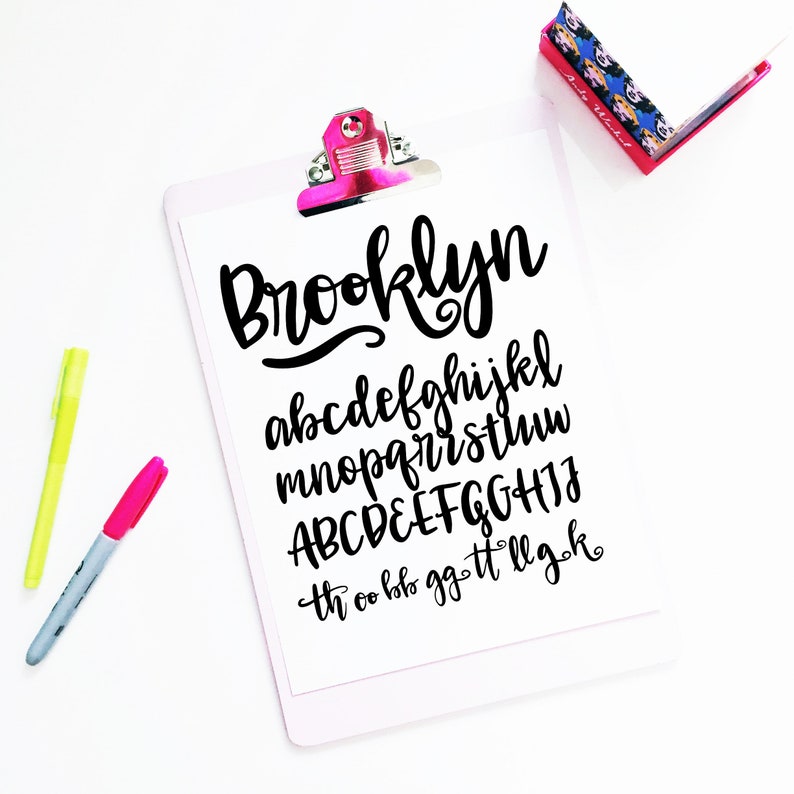 Andy Warhol
Brooklyn
abcdefghijkl
mnopqrrstuw
ABCDEEFGGHIJ
th oo bb gg tt ll g k